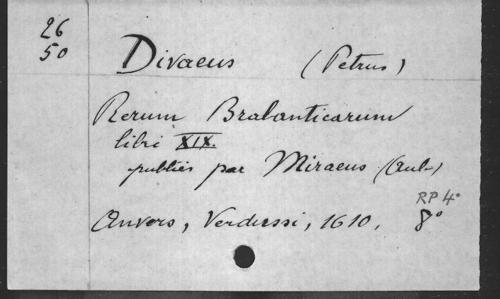 26
50
Divaeus (Petrus)
Rerum Brabanticarum
libri XIX.
publiés par Miraeus (Aub.)
RP 4°
Anvers, Verdussi, 1610, 8°